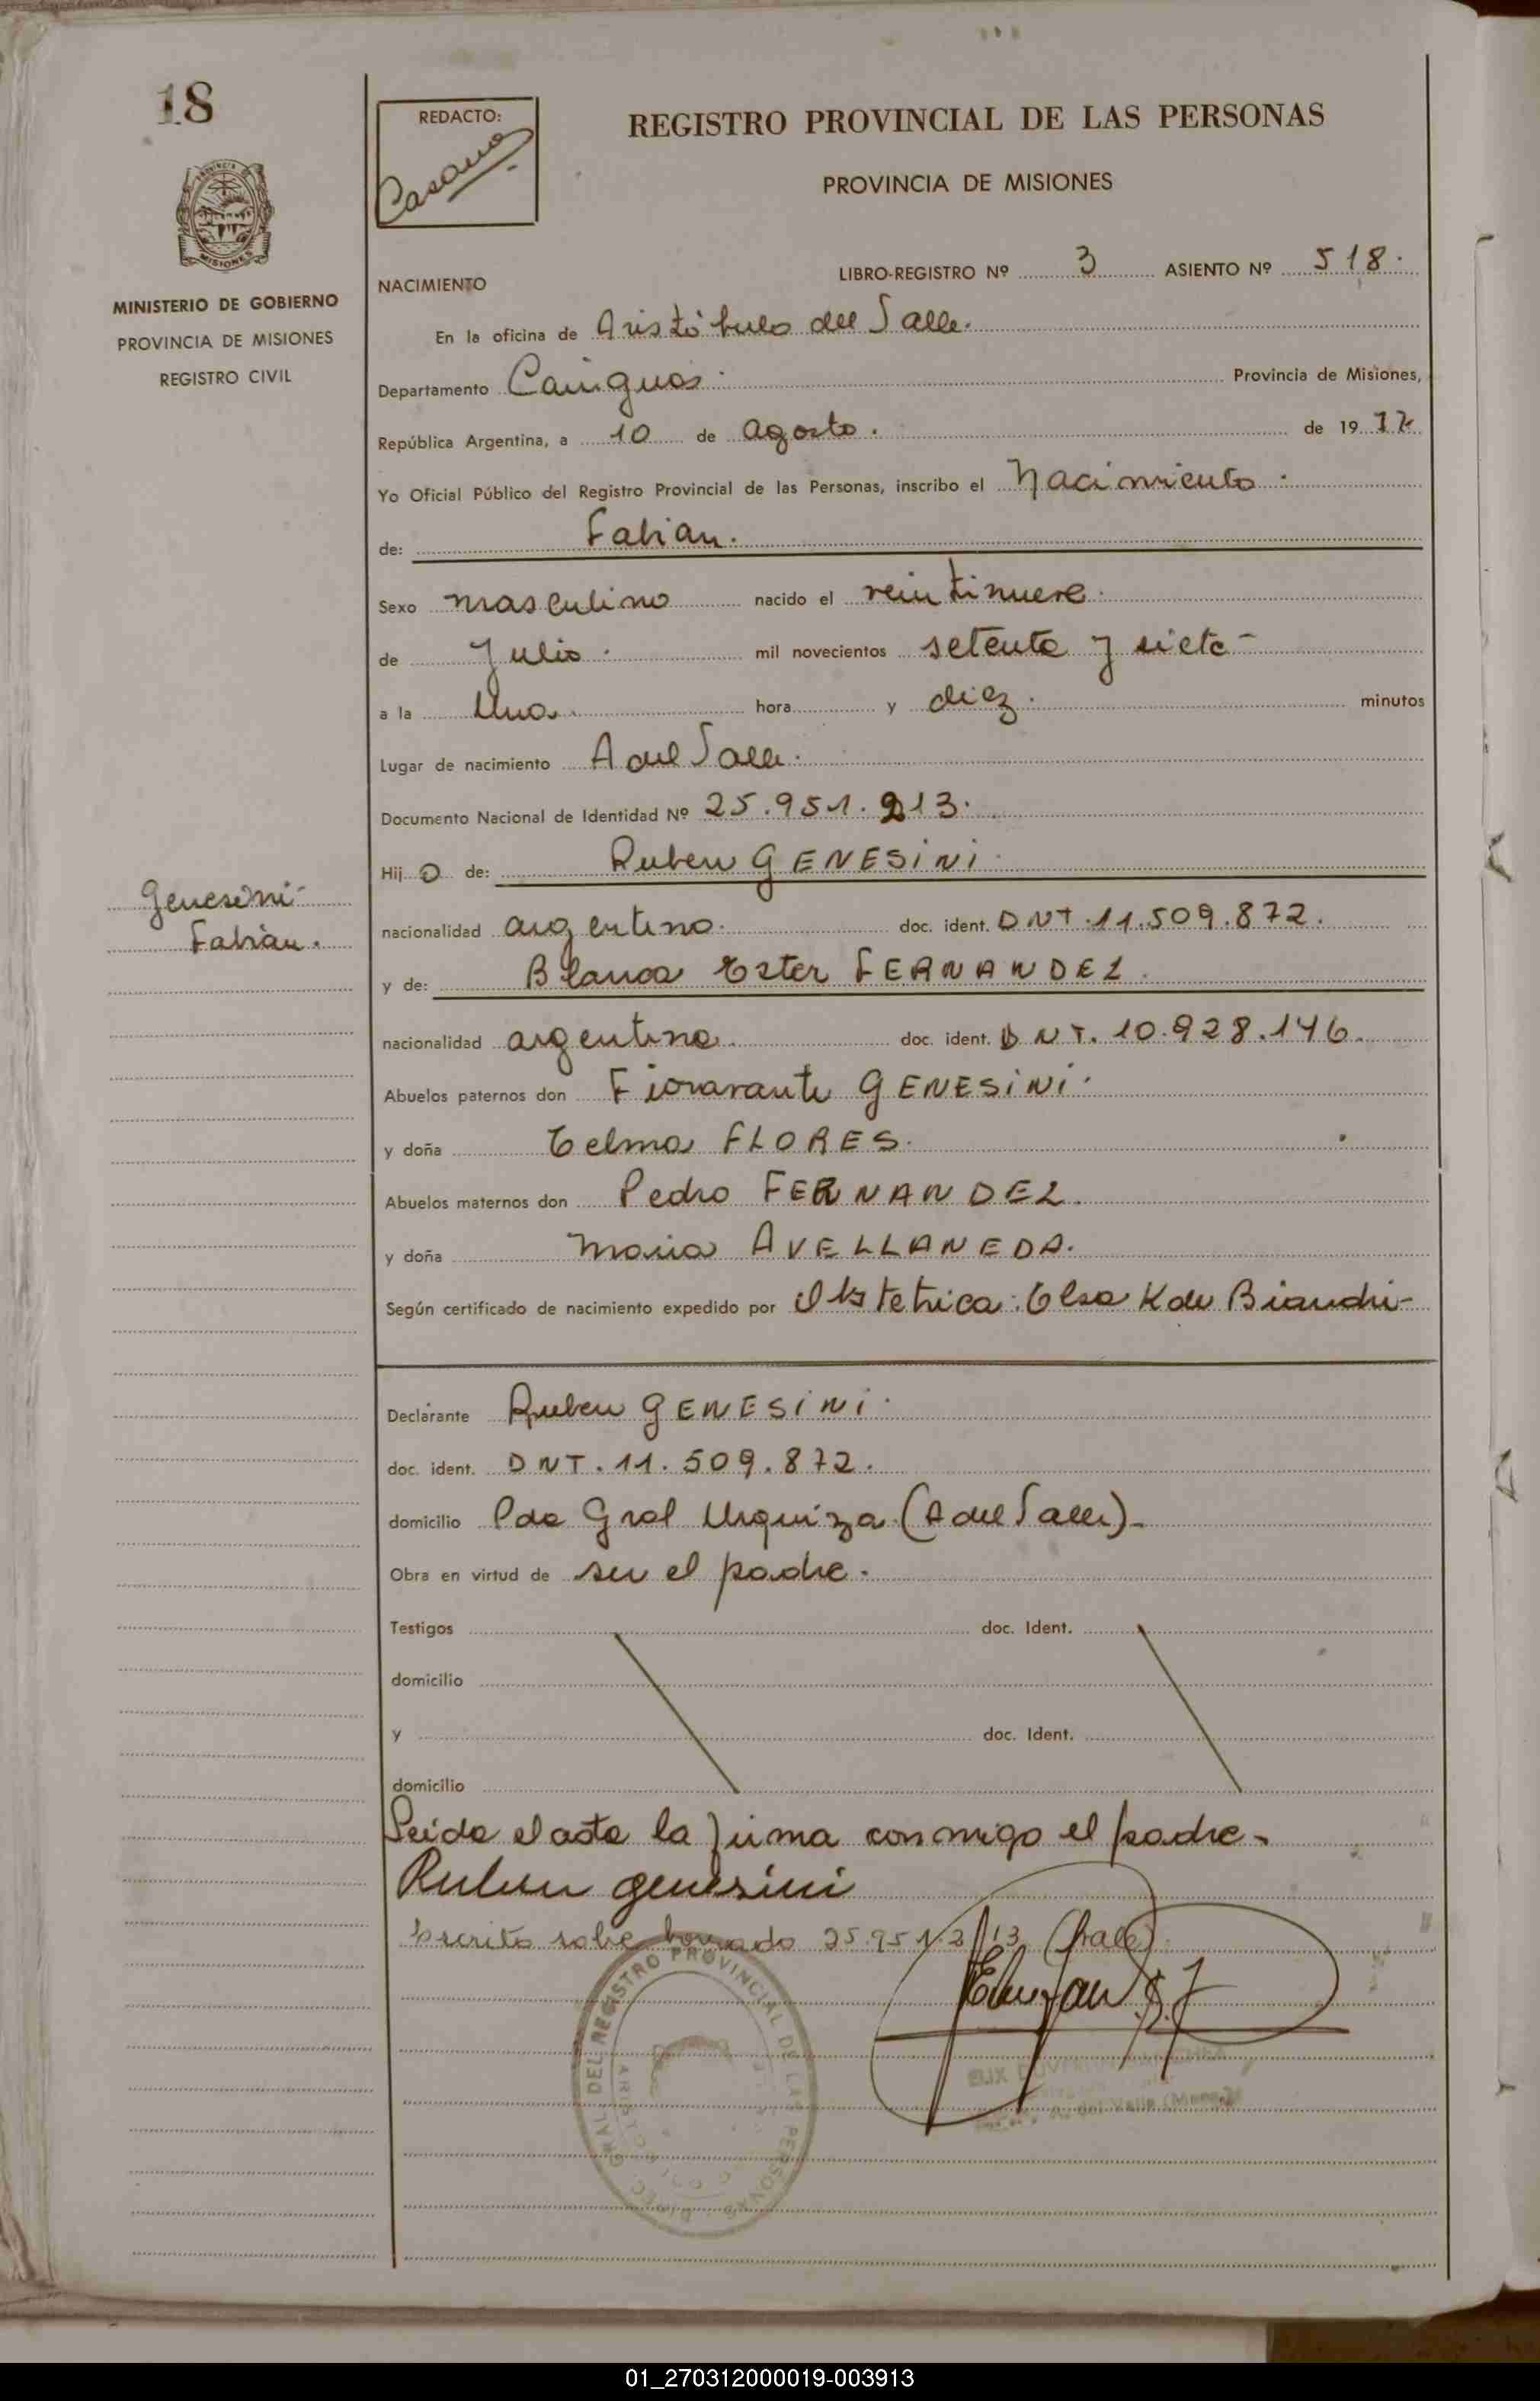 18
REDACTO:
Casano
REGISTRO PROVINCIAL DE LAS PERSONAS
PROVINCIA DE MISIONES
MISIONES
MINISTERIO DE GOBIERNO
PROVINCIA DE MISIONES
REGISTRO CIVIL
LIBRO-REGISTRO Nº 3 ASIENTO Nº 518.
NACIMIENTO
En la oficina de Aristóbulo del Valle.
Departamento Cainguas. Provincia de Misiones,
República Argentina, a 10 de agosto. de 1977
Yo Oficial Público del Registro Provincial de las Personas, inscribo el Nacimiento.
de: Fabian.
Sexo masculino nacido el veintinueve.
de Julio. mil novecientos setenta y siete-
a la Una. hora y diez. minutos
Lugar de nacimiento A del Valle.
Documento Nacional de Identidad Nº 25.951.213.
Hij o de: Ruben GENESINI.
Genesini-
Fabián.
nacionalidad argentino. doc. ident. DNT.11.509.872.
y de: Blanca Ester FERNANDEZ.
nacionalidad argentina. doc. ident. DNT.10.928.146.
Abuelos paternos don Fioravante GENESINI.
y doña Telma FLORES.
Abuelos maternos don Pedro FERNANDEZ.
y doña Maria AVELLANEDA.
Según certificado de nacimiento expedido por Obstetrica: Elsa K de Bianchi-
Declarante Ruben GENESINI.
doc. ident. DNT.11.509.872.
domicilio Pda Gral Urquiza (A del Valle)-
Obra en virtud de ser el padre.
Testigos doc. Ident.
domicilio
y doc. Ident.
domicilio
Leida el acta la firma conmigo el padre-
Ruben genesini
Escrito sobre borrado 25.951.213 (Vale)
DIREC. GRAL. DEL REGISTRO PROVINCIAL DE LAS PERSONAS
A. del Valle
01_270312000019-003913